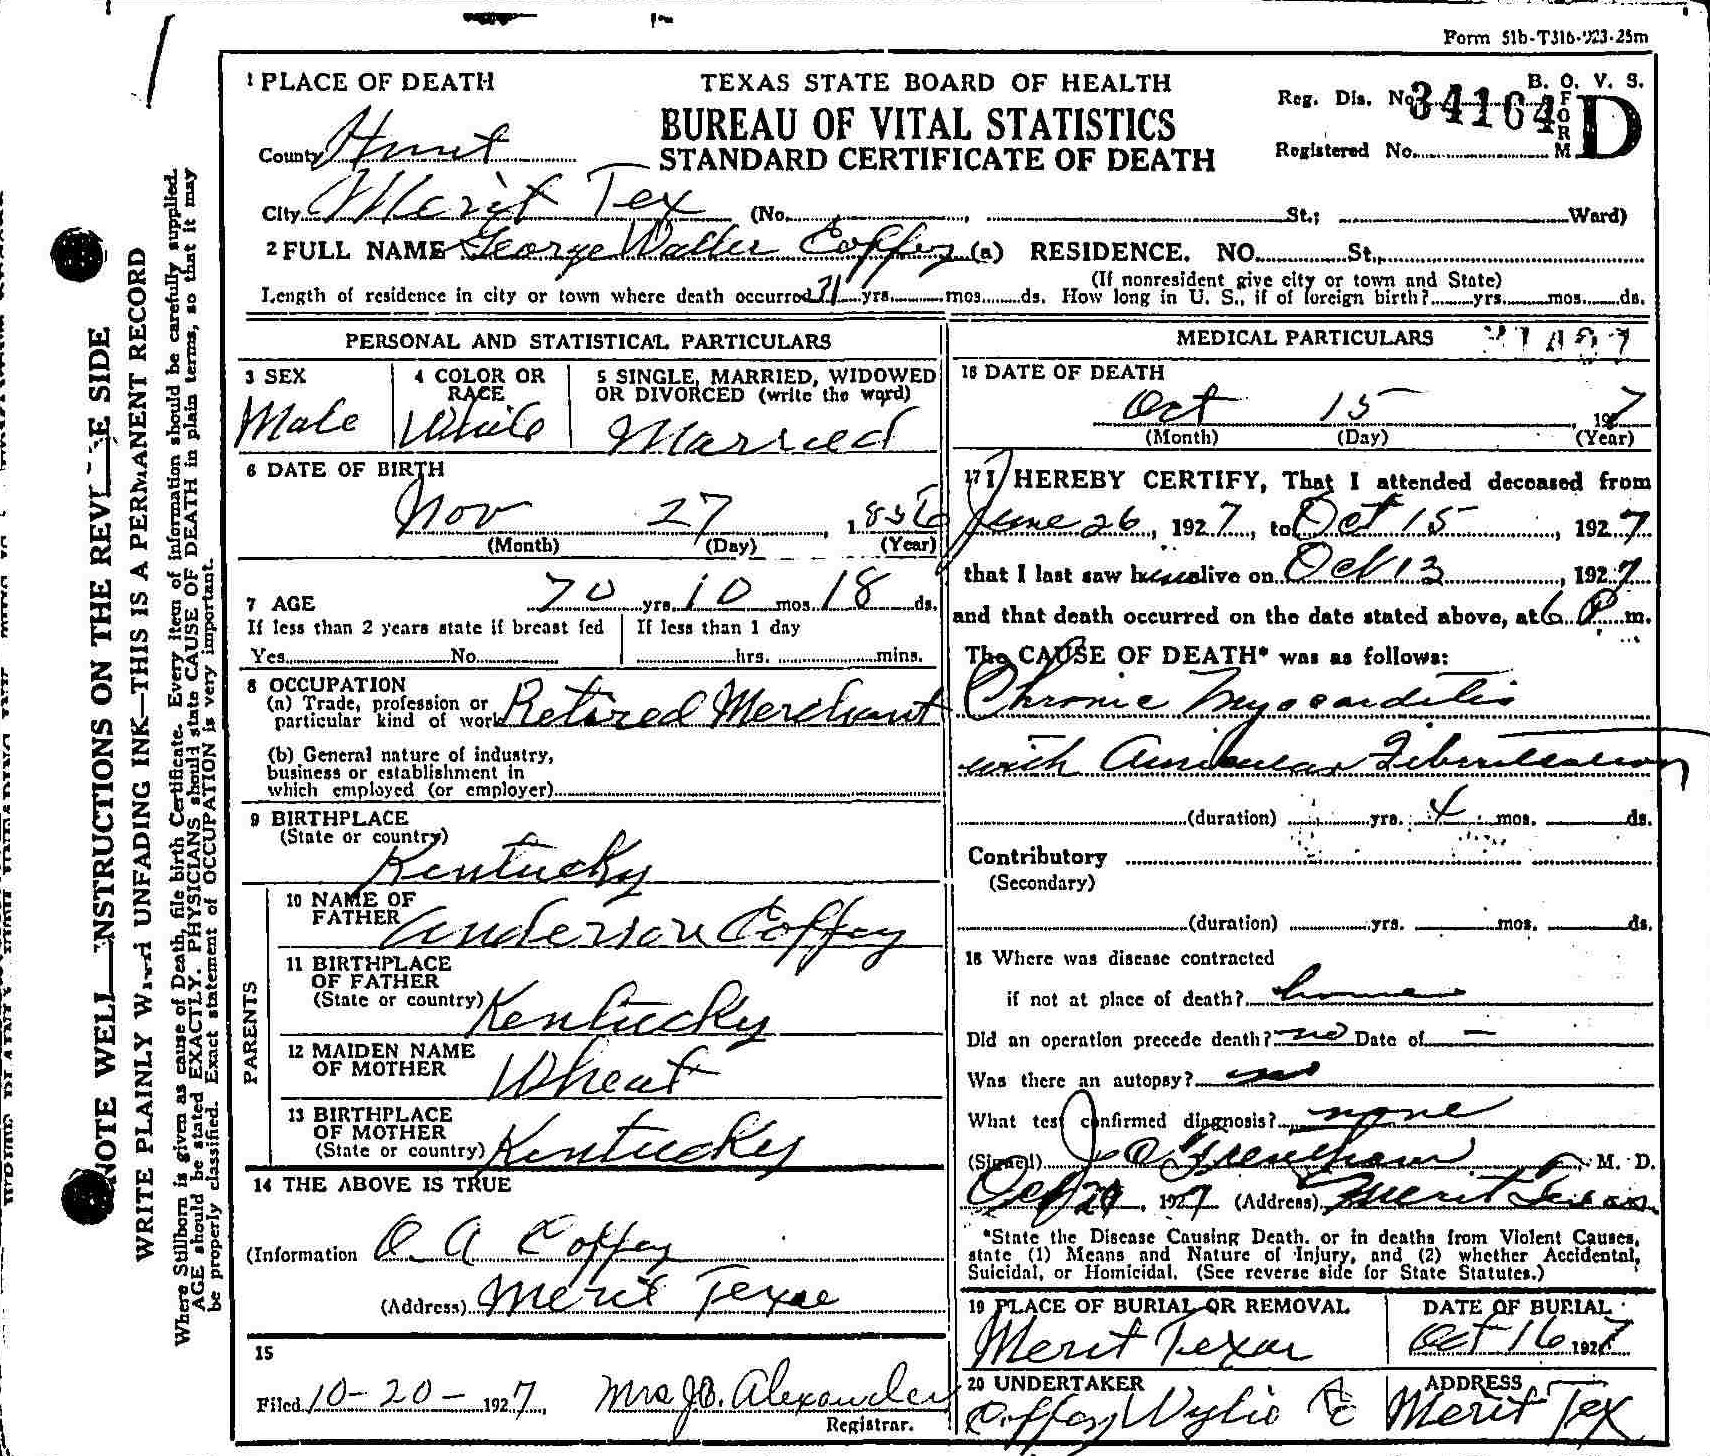 Form 51b-T316-923-25m
1 PLACE OF DEATH
TEXAS STATE BOARD OF HEALTH
BUREAU OF VITAL STATISTICS
STANDARD CERTIFICATE OF DEATH
B. O. V. S.
Reg. Dis. No. 34164
FORM D
Registered No.
County Hunt
City Merit Tex (No. , St.; Ward)
2 FULL NAME George Walter Coffey (a) RESIDENCE. NO. St.,
(If nonresident give city or town and State)
Length of residence in city or town where death occurred 31 yrs. mos. ds. How long in U. S., if of foreign birth? yrs. mos. ds.
PERSONAL AND STATISTICAL PARTICULARS
3 SEX
Male
4 COLOR OR RACE
White
5 SINGLE, MARRIED, WIDOWED
OR DIVORCED (write the word)
Married
6 DATE OF BIRTH
Nov 27, 1856
(Month) (Day) (Year)
7 AGE 70 yrs. 10 mos. 18 ds.
If less than 2 years state if breast fed
Yes No
If less than 1 day
hrs. mins.
8 OCCUPATION
(a) Trade, profession or
particular kind of work Retired Merchant
(b) General nature of industry,
business or establishment in
which employed (or employer)
9 BIRTHPLACE
(State or country)
Kentucky
PARENTS
10 NAME OF
FATHER Anderson Coffey
11 BIRTHPLACE
OF FATHER
(State or country) Kentucky
12 MAIDEN NAME
OF MOTHER Wheat
13 BIRTHPLACE
OF MOTHER
(State or country) Kentucky
14 THE ABOVE IS TRUE
(Information O A Coffey
(Address) Merit Texas
15
Filed 10-20-1927, Mrs J.C. Alexander
Registrar.
MEDICAL PARTICULARS
16 DATE OF DEATH
Oct 15, 1927
(Month) (Day) (Year)
17 I HEREBY CERTIFY, That I attended deceased from
June 26, 1927, to Oct 15, 1927
that I last saw him alive on Oct 13, 1927
and that death occurred on the date stated above, at 6 P. m.
The CAUSE OF DEATH* was as follows:
Chronic Myocarditis
with Auricular Fibrillation
(duration) yrs. 4 mos. ds.
Contributory
(Secondary)
(duration) yrs. mos. ds.
18 Where was disease contracted
if not at place of death? home
Did an operation precede death? no Date of —
Was there an autopsy? no
What test confirmed diagnosis? none
(Signed) J O , M. D.
Oct , 1927 (Address) Merit Texas
*State the Disease Causing Death. or in deaths from Violent Causes,
state (1) Means and Nature of Injury, and (2) whether Accidental,
Suicidal, or Homicidal. (See reverse side for State Statutes.)
19 PLACE OF BURIAL OR REMOVAL
Merit Texas
DATE OF BURIAL
Oct 16 1927
20 UNDERTAKER
Coffey Wylie & Co
ADDRESS
Merit Tex
NOTE WELL INSTRUCTIONS ON THE REVERSE SIDE
WRITE PLAINLY WITH UNFADING INK—THIS IS A PERMANENT RECORD
Where Stillborn is given as cause of Death, file birth Certificate. Every item of information should be carefully supplied.
AGE should be stated EXACTLY. PHYSICIANS should state CAUSE OF DEATH in plain terms, so that it may
be properly classified. Exact statement of OCCUPATION is very important.